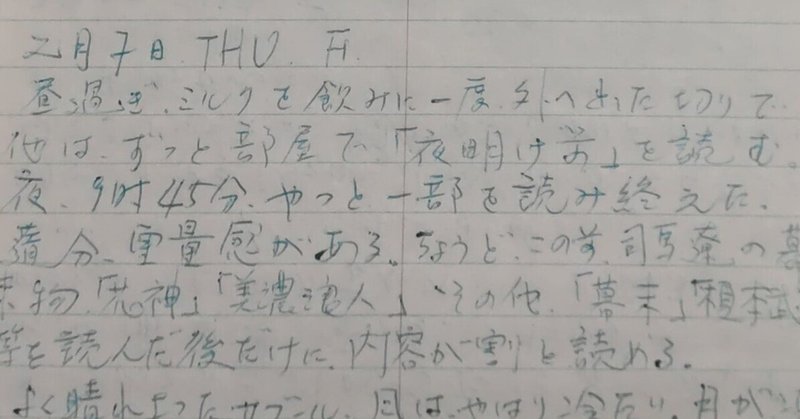 二月7日.THU.F.
昼過ぎ、ミルクを飲みに一度、外へ出た切りで
他は、ずっと部屋で、「夜明け前」を読む。
夜、9時45分、やっと一部を読み終えた。
随分、重量感がある。ちょうど、この前、司馬遼の幕
末物、「鬼神」「美濃浪人」、その他、「幕末」「榎本武
等を読んだ後だけに、内容が割と読める。
よく晴れ カブール、日は、やはり冷たい、